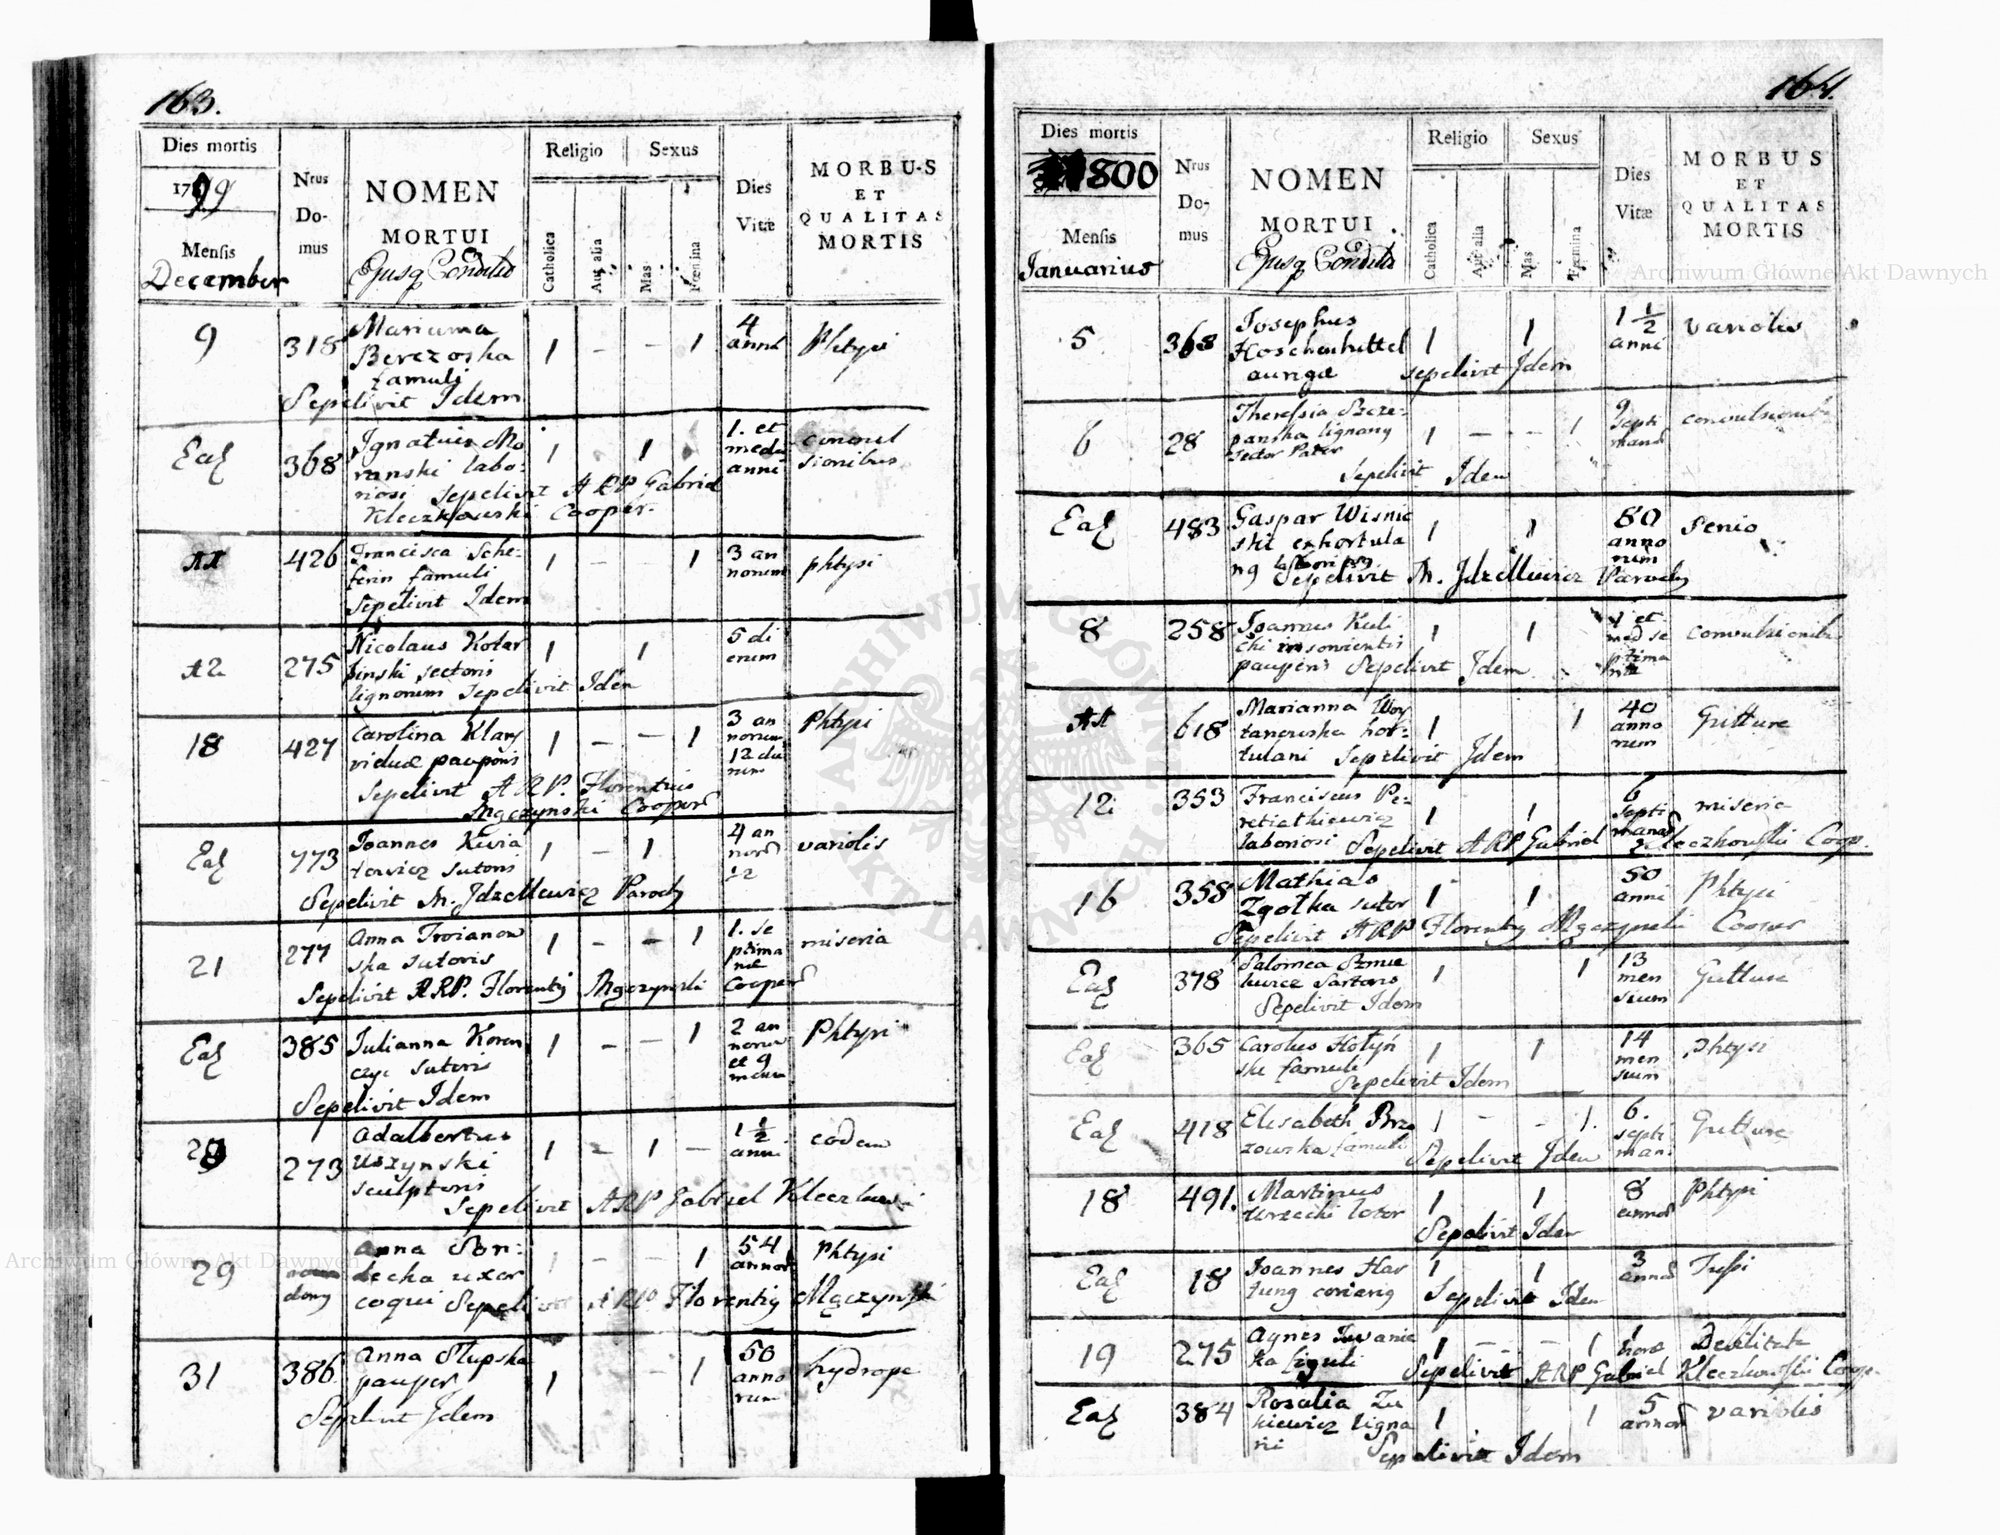 163.
Dies mortis
1799
Mensis
December
Nrus
Do-
mus
NOMEN
MORTUI
Ejusq Conditio
Religio
Catholica
Aut alia
Sexus
Mas
Fœmina
Dies
Vitæ
MORBUS
ET
QUALITAS
MORTIS
9
318
Marianna
Berezoska
famuli
Sepelivit Idem
1
-
-
1
4
anni
Phtysi
Ead
368
Ignatius Mo
ranski labo:
riosi Sepelivit ARP Gabriel
Kleczkowski Cooper.
1
1
1. et
medii
anni
convul
sionibus
11
426
Francisca Sche-
ferin famuli
Sepelivit Idem
1
-
1
3 an
norum
phtysi
12
275
Nicolaus Kotar
binski sectoris
lignorum Sepelivit Idem
1
1
5 di
erum
18
427
Carolina Klary
viduæ pauperis
Sepelivit ARP. Florentius
Mgczynski Cooper
1
-
-
1
3 an
norum
12 die
rum
Phtysi
Ead
773
Joannes Kwia
tewicz sutoris
Sepelivit M. Jdzellewicz Parochg
1
-
1
4 an
nord
12
variolis
21
277
Anna Troianow
ska sutoris
Sepelivit ARP. Florentig Mgczynski Cooper
1
-
-
1
1. se
ptima
næ
miseria
Ead
385
Julianna Koren
czyc Sutoris
Sepelivit Idem
1
-
-
1
2 an
norum
et 9
mens
Phtysi
28
273
Adalbertus
Uszynski
sculptoris
Sepelivit ARP Gabriel Kleczkowski
1
-
1
-
1 1/2
anni
eodem
29
dong
Anna Son:
decka uxor
coqui Sepelivit ARP Florentig Mgczynski
1
-
-
1
54
annor
Phtysi
31
386
Anna Słupska
pauper
Sepelivit Idem
1
-
1
50
anno
rum
hydrope
164.
Dies mortis
1800
Mensis
Januarius
Nrus
Do-
mus
NOMEN
MORTUI
Ejusq Conditio
Religio
Catholica
Aut alia
Sexus
Mas
Fœmina
Dies
Vitæ
MORBUS
ET
QUALITAS
MORTIS
5
368
Josephus
Hoschenhittel
aurigæ
sepelivit Idem
1
1
1 1/2
anni
variolis
6
28
Theressia Szcze:
panska lignorum
sector Pater
Sepelivit Idem
1
-
-
1
9
septi
manar
convulsionib
Ead
483
Gaspar Wisnie
ski exhortula
ng laborios
Sepelivit M. Jdzellewicz Parochg
1
1
80
anno
rum
Senio
8
258
Joannes Kuli
cki inservientis
pauperis Sepelivit Idem
1
1
1 et
med se
ptima
næ
convulsionibus
11
618
Marianna Woy
tanowska hor-
tulani Sepelivit Idem
1
1
40
anno
rum
Gutture
12
353
Franciscus Pe-
retiatkiewicz
laboriosi Sepelivit ARP Gabriel Kleczkowski Coop.
1
1
6
septi
manar
miseria
16
358
Mathias
Zgołka sutor
Sepelivit ARP Florentig Mgczynski Cooper
1
1
50
anni
Phtysi
Ead
378
Salomea
Sartoris
Sepelivit Idem
1
1
13
men
sium
Gutture
Ead
365
Carolus Hołyń
ski famuli
Sepelivit Idem
1
1
14
men
sium
phtysi
Ead
418
Elisabeth Brzo
zowska famuli
Sepelivit Idem
1
-
-
1.
6.
septi
man
Gutture
18
491.
Martinus
Urzecki lotor
Sepelivit Idem
1
1
8
annor
Phtysi
Ead
18
Joannes Har
tung coriarig
Sepelivit Idem
1
1
3
annor
Tussi
19
275
Agnes Iwanic
ka figuli
Sepelivit ARP Gabriel Kleczkowski Coop.
1
-
-
1
1
horæ
Debilitate
Ead
384
Rosalia Zu
kiewicz ligna
rii
Sepelivit Idem
1
1
5
annor
variolis
Archiwum Główne Akt Dawnych
Archiwum Główne Akt Dawnych
ARCHIWUM GŁÓWNE AKT DAWNYCH